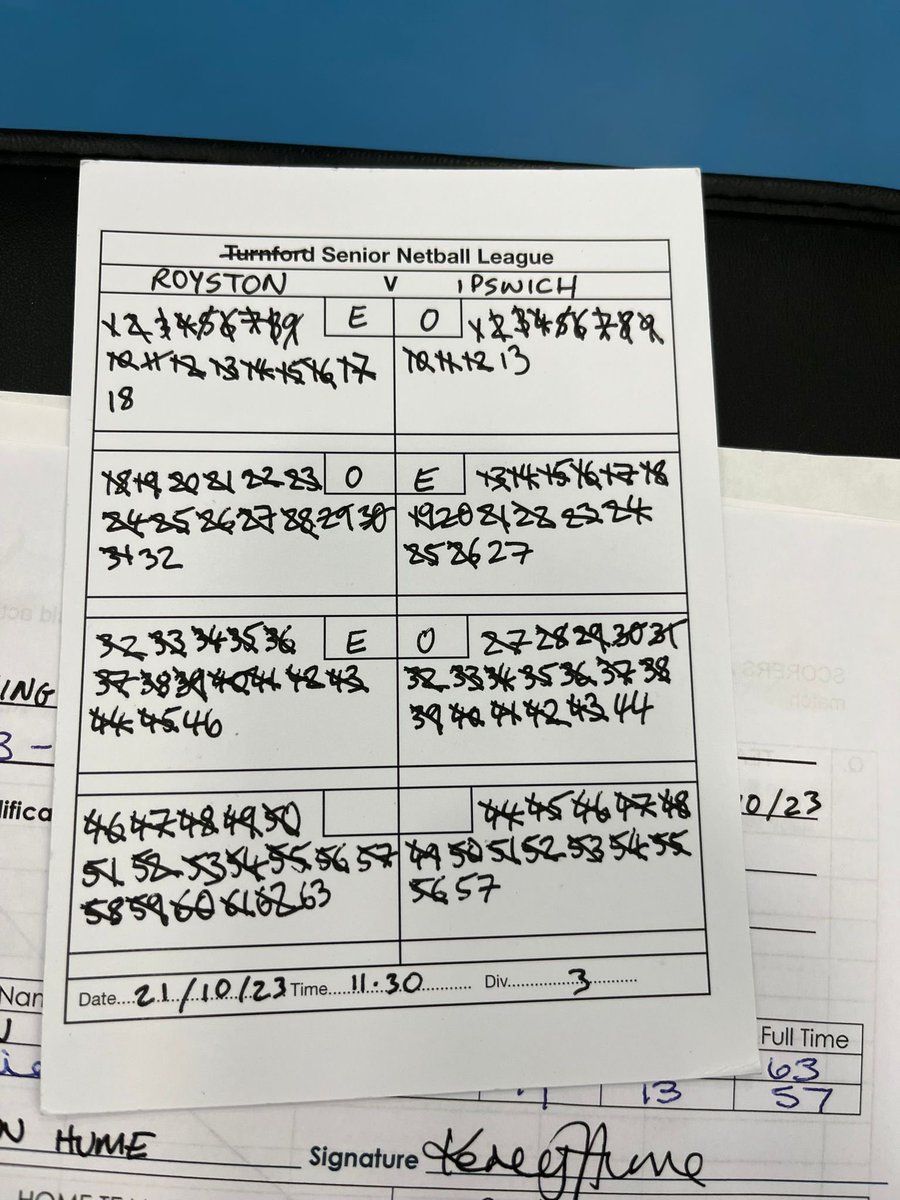 Turnford Senior Netball League
ROYSTON v IPSWICH
1 2 3 4 5 6 7 8 9 E O 1 2 3 4 5 6 7 8 9
10 11 12 13 14 15 16 17 10 11 12 13
18
18 19 20 21 22 23 O E 13 14 15 16 17 18
24 25 26 27 28 29 30 19 20 21 22 23 24
31 32 25 26 27
32 33 34 35 36 E O 27 28 29 30 31
37 38 39 40 41 42 43 32 33 34 35 36 37 38
44 45 46 39 40 41 42 43 44
46 47 48 49 50 44 45 46 47 48
51 52 53 54 55 56 57 49 50 51 52 53 54 55
58 59 60 61 62 63 56 57
Date....21/10/23 Time....11.30........... Div..............3............
ING
3 -
0/23
Nan
Full Time
63
13 57
HUME
Signature